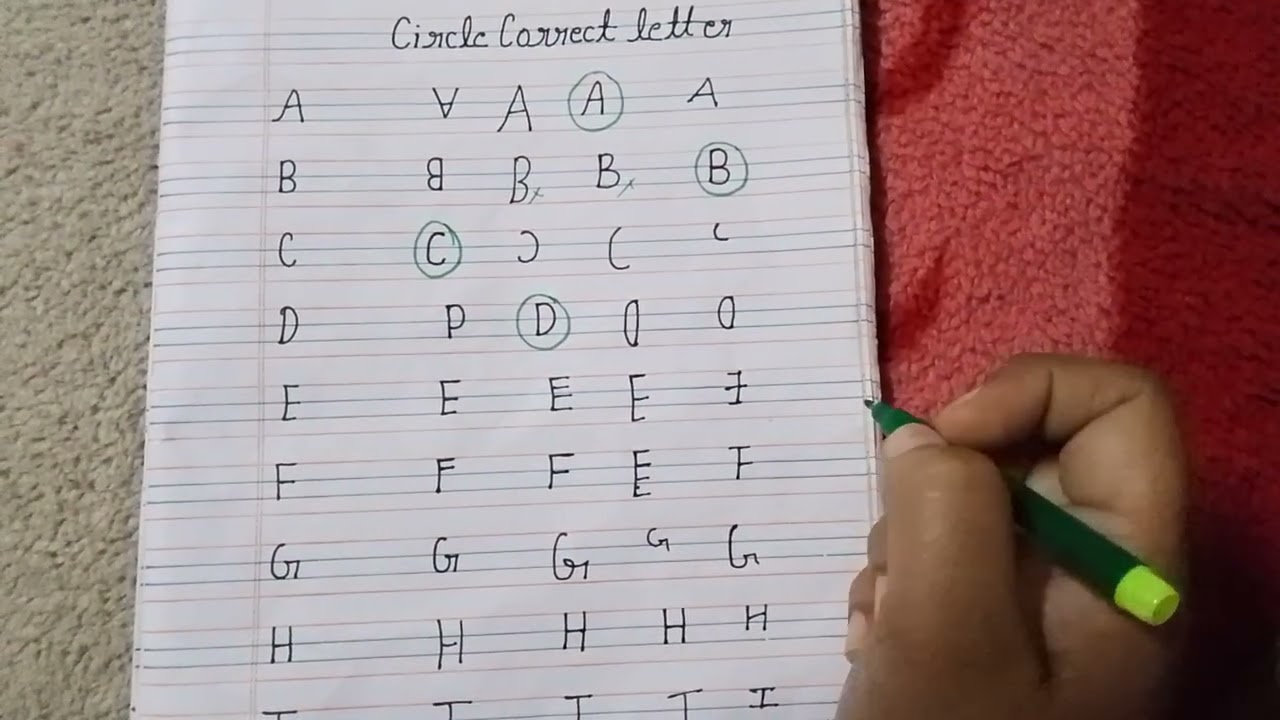 Circle Correct letter
A ∀ A A A
B ᗺ Bx Bx B
C C Ɔ C C
D P D 0 0
E E E E Ǝ
F F F E F
G G G G G
H H H H H
I I I I I